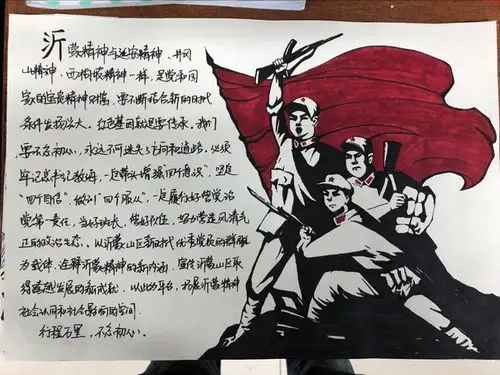 沂蒙精神与延安精神、井冈
山精神、西柏坡精神一样，是党和国
家的宝贵精神财富，要不断结合新的时代
条件发扬光大。红色基因就是要传承。我们
要不忘初心，永远不可迷失了方向和道路，必须
牢记总书记教诲，一定带头增强"四个意识"，坚定
"四个自信"，做到"四个服从"，一定履行好管党治
党第一责任，当好班长，管好队伍，努力营造风清气
正的政治生态，以沂蒙山区新时代优秀党员的群雕
为载体，诠释沂蒙精神的新内涵，宣传沂蒙山区取
得跨越发展的新成就，以此为平台，拓展沂蒙精神
社会认同和社会影响的空间。
行程万里，不忘初心。